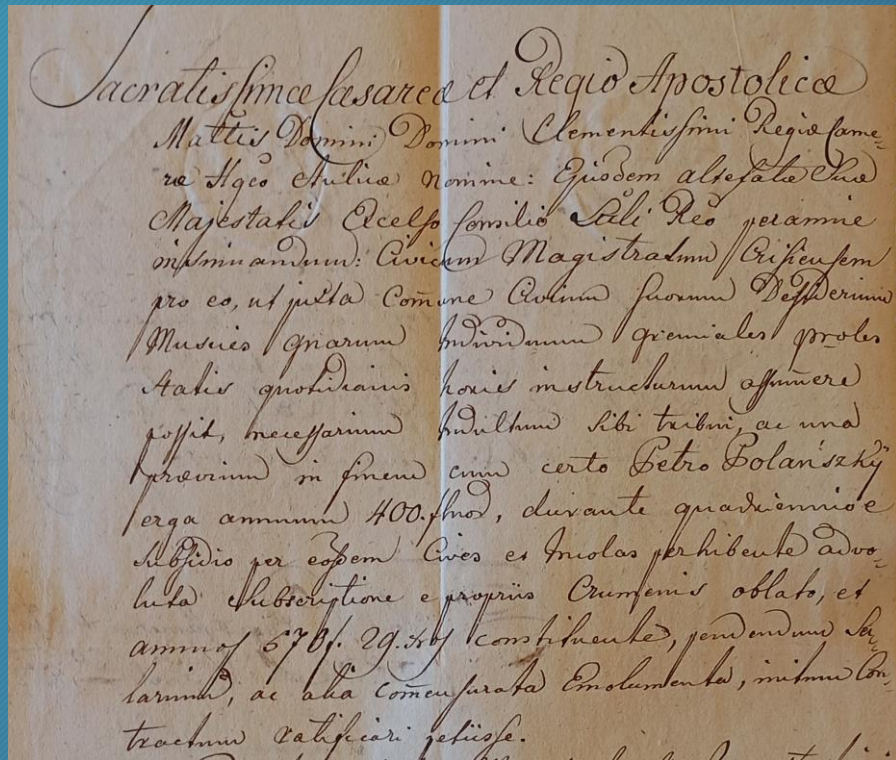 Sacratissimæ Cæsareæ et Regio Apostolicæ
Mattis Domini Domini Clementissimi Regiæ Came-
ræ Hgco Aulicæ Nomine: Ejusdem altefatæ Suæ
Majestatis Excelso Consilio Lttli Reo peramne
insinuandum: Civicum Magistratum Crisiensem
pro eo, ut juxta Com̄une Civium suorum Desiderium
Musices gnarum Individuum gremiales proles
statis quotidianis horis instructurum assum̄ere
possit, necessarium Indultum sibi tribui, ac una
prævium in finem cum certo Petro Polánszký
erga annuum 400. fnos, durante quadriennio e
subsidio per eosdem Cives et Incolas perhibente advo-
luta Subscriptione e propriis Crumenis oblato, et
annuos 570 f. 29. xos constituente, pendendum Sa-
larium, ac alia com̄ensurata Emolumenta, initum Con-
tractum ratificari petiisse.